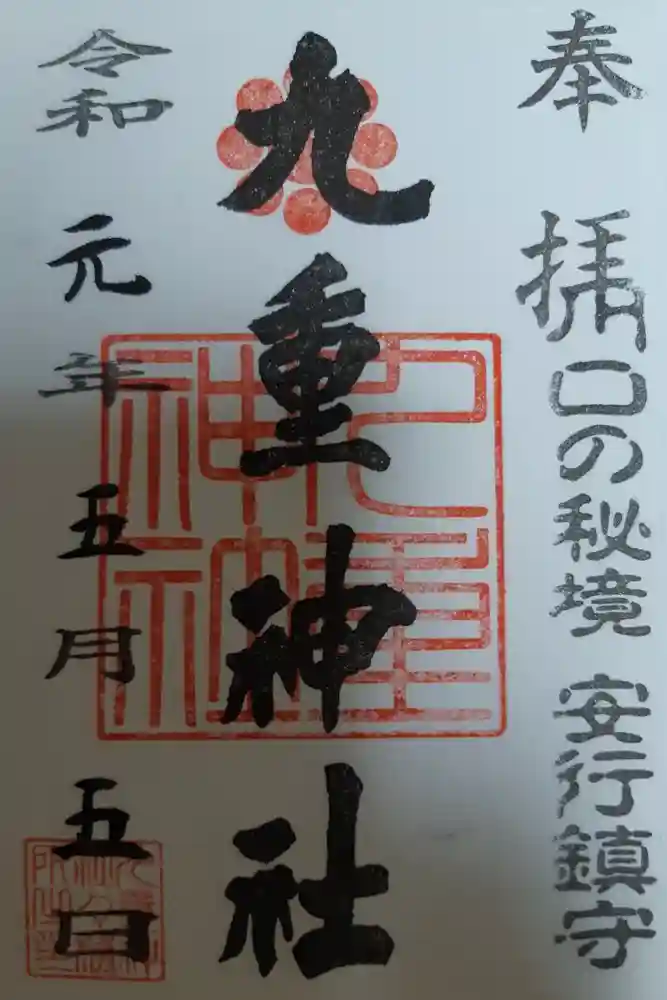 奉拝
川口の秘境 安行鎮守
九重神社
九重神社
令和元年五月五日